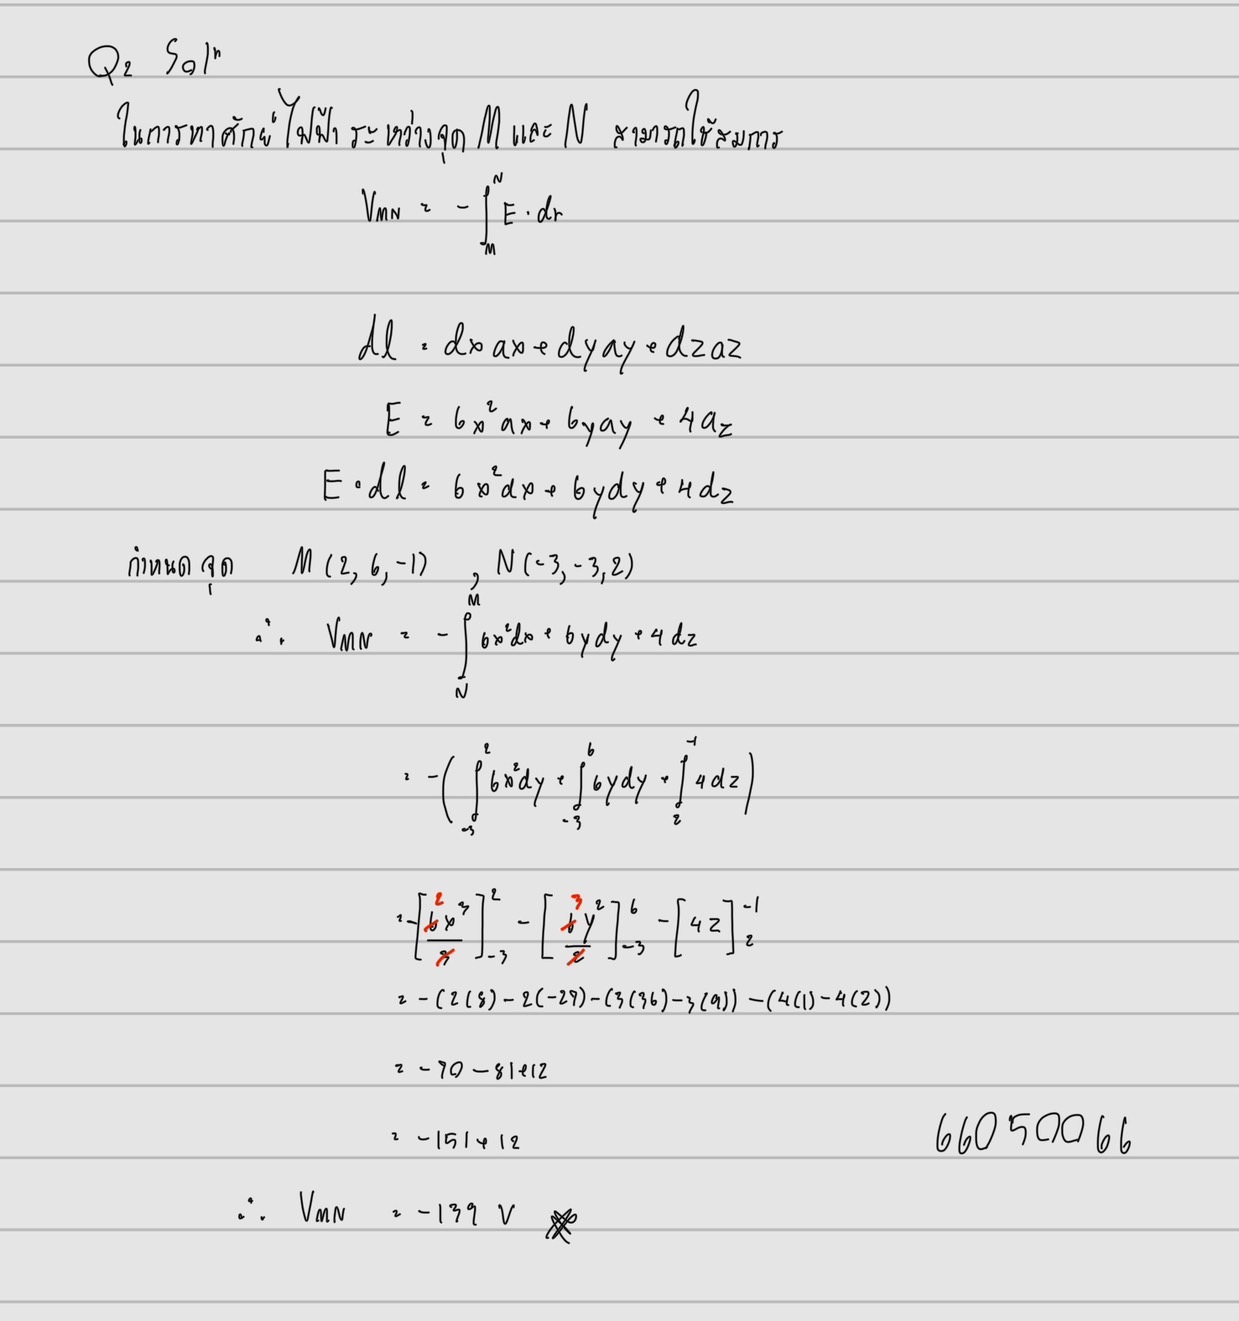 Q2 Solⁿ
ในการหาศักย์ไฟฟ้า ระหว่างจุด M และ N สามารถใช้สมการ
V_MN = - ∫_M^N E · dr
dl = dx ax + dy ay + dz az
E = 6x² ax + 6y ay + 4 az
E · dl = 6x² dx + 6y dy + 4 dz
กำหนด จุด M (2, 6, -1) , N (-3, -3, 2)
∴ V_MN = - ∫_N^M 6x² dx + 6y dy + 4 dz
= - ( ∫_-3^2 6x² dy + ∫_-3^6 6y dy + ∫_2^-1 4 dz )
= - [ 2 6x³/3 ]_-3^2 - [ 3 6y²/2 ]_-3^6 - [ 4z ]_2^-1
= - (2(8) - 2(-27) - (3(36) - 3(9)) - (4(1) - 4(2))
= - 70 - 81 + 12
= - 151 + 12
66050066
∴ V_MN = - 139 V